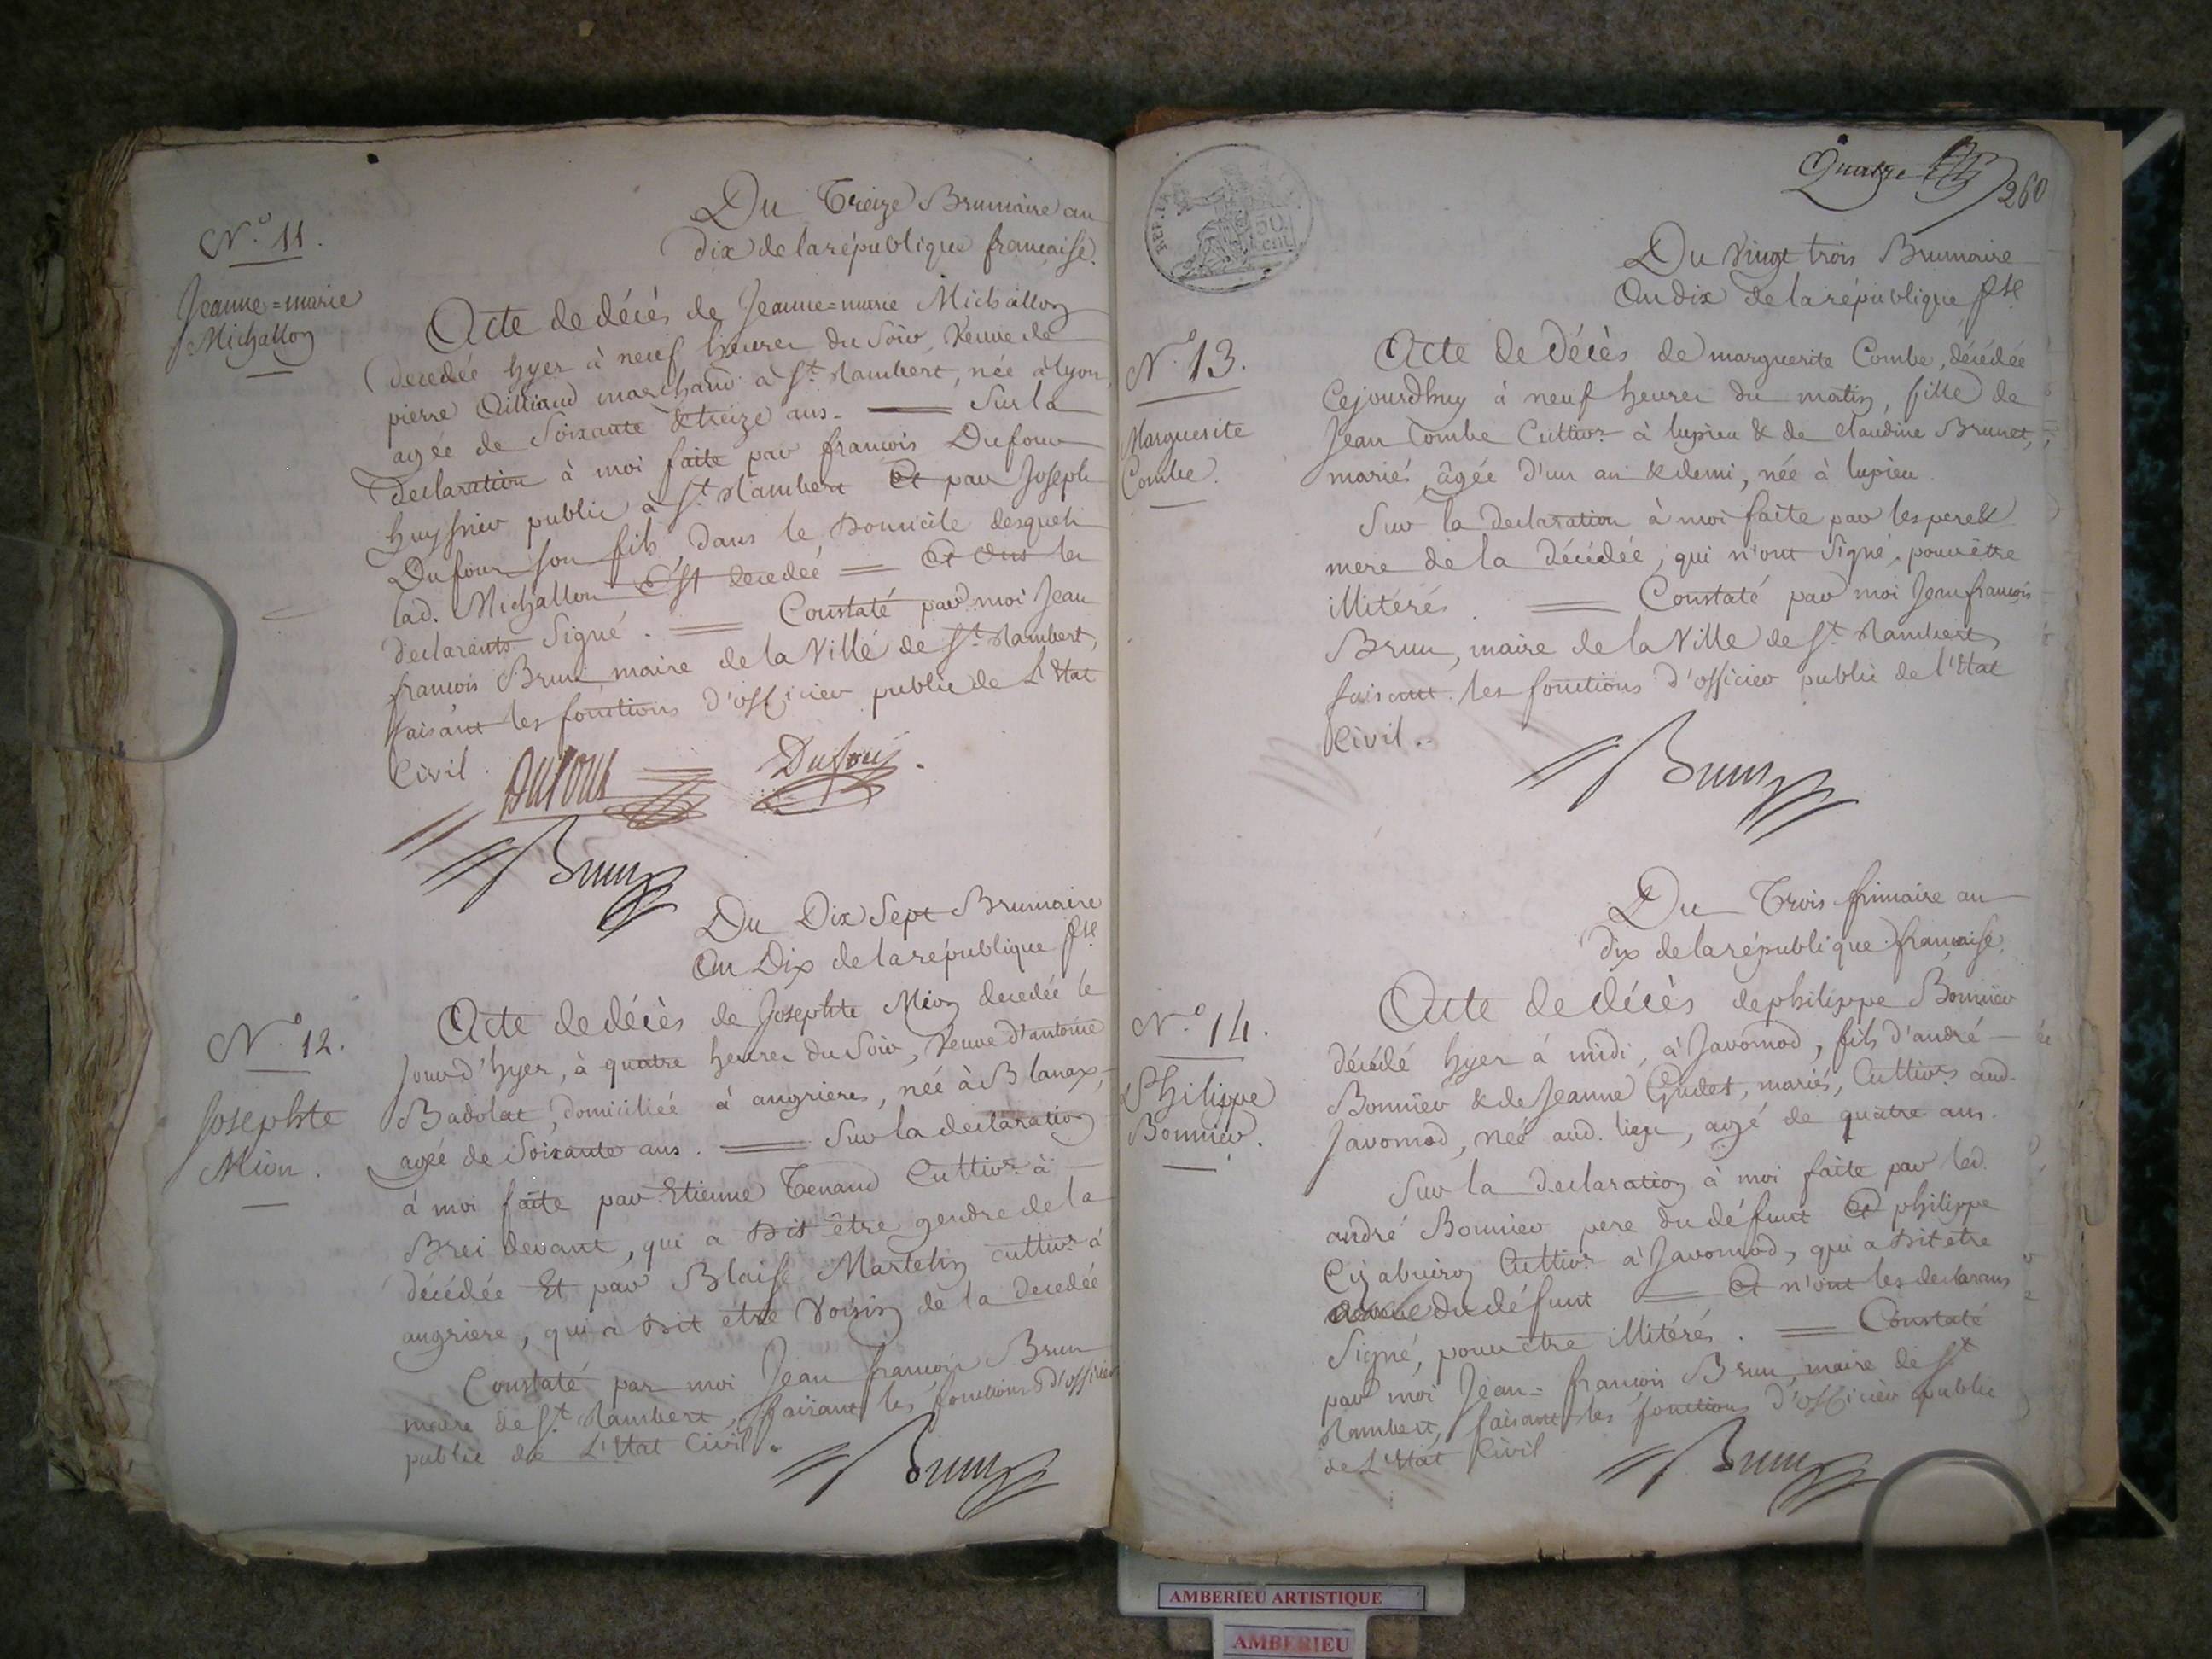 N.o 11.
Jeanne=marie
Michallon
Du Treize Brumaire an
dix de la république française.
Acte de décès de Jeanne=marie Michallon
decedée hyer à neuf heures du Soir, Veuve de
pierre Gilliand marchand à St Rambert, née à lyon,
agée de Soixante & treize ans. — Sur la
declaration à moi faite par françois Dufour
huyssier public à St Rambert Et par Joseph
Dufour son fils, dans le Domicile desquels
lad. Michallon est decedée = Et Ont les
declarants Signé. = Constaté par moi Jean
françois Brun maire de la Ville de St Rambert,
faisant les fonctions d'officier public de L'Etat
Civil.
Dufour Dufour
Brun
N.o 12.
Josephte
Mion.
Du Dix Sept Brumaire
An Dix de la république fse
Acte de décès de Josephte Mion decedée le
Jour d'hyer, à quatre heures du Soir, Veuve d'antoine
Badolat, domiciliée à angrieres, née à Blanaz,
agée de Soixante ans. = Sur la declaration
à moi faite par Etienne Tenand Cultivr à
Brei devant, qui a Dit être gendre de la
décédée Et par Blaise Martelin cultivr à
angriere, qui a Dit etre Voisin de la decedée
Constaté par moi Jean françois Brun
maire de St Rambert, faisant les fonctions d'officier
public de L'Etat Civil.
Brun
Quatre
260
REP.
50
cent
N.o 13.
Marguerite
Combe.
Du Vingt trois Brumaire
An dix de la république fse
Acte de Décès de marguerite Combe, décédée
Cejourdhuy à neuf heures du matin, fille de
Jean Combe Cultivr à lupieu & de Claudine Brunet,
mariés, âgée d'un an & demi, née à lupieu
Sur la declaration à moi faite par les pere &
mere de la décédée, qui n'ont Signé, pour être
illitérés. = Constaté par moi Jean françois
Brun, maire de la Ville de St Rambert,
faisant les fonctions d'officier public de l'Etat
Civil..
Brun
N.o 14.
Philippe
Bonnier.
Du Trois frimaire an
dix de la république française.
Acte de décès de philippe Bonnier
décédé hyer à midi, à Javornod, fils d'andré
Bonnier & de Jeanne Gudet, mariés, Cultivrs aud.
Javornod, neé aud. lieu, agé de quatre ans.
Sur la declaration à moi faite par led.
andré Bonnier pere du défunt Et philippe
Cultivr à Javornod, qui a Dit etre
du défunt = Et n'ont les declarans
Signé, pour être illitérés. = Constaté
par moi Jean=françois Brun, maire de St
Rambert, faisant les fonctions d'officier public
de L'Etat Civil
Brun
AMBERIEU ARTISTIQUE
AMBERIEU